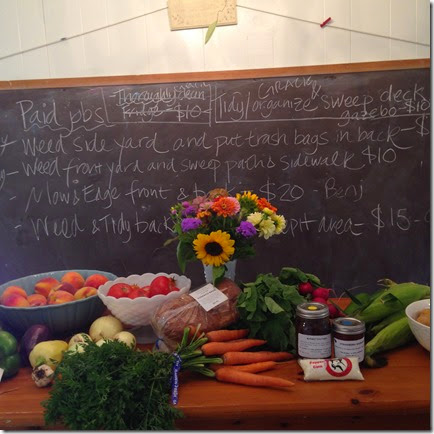 Paid jobs
Thoroughly clean
Fridge - $10
Gracie
Tidy/organize & sweep deck
gazebo $10
Weed side yard and put trash bags in back - $
Weed front yard and sweep path & sidewalk $10
- Mow & Edge front & $20 - Benj
- Weed & Tidy back pit area = $15 -